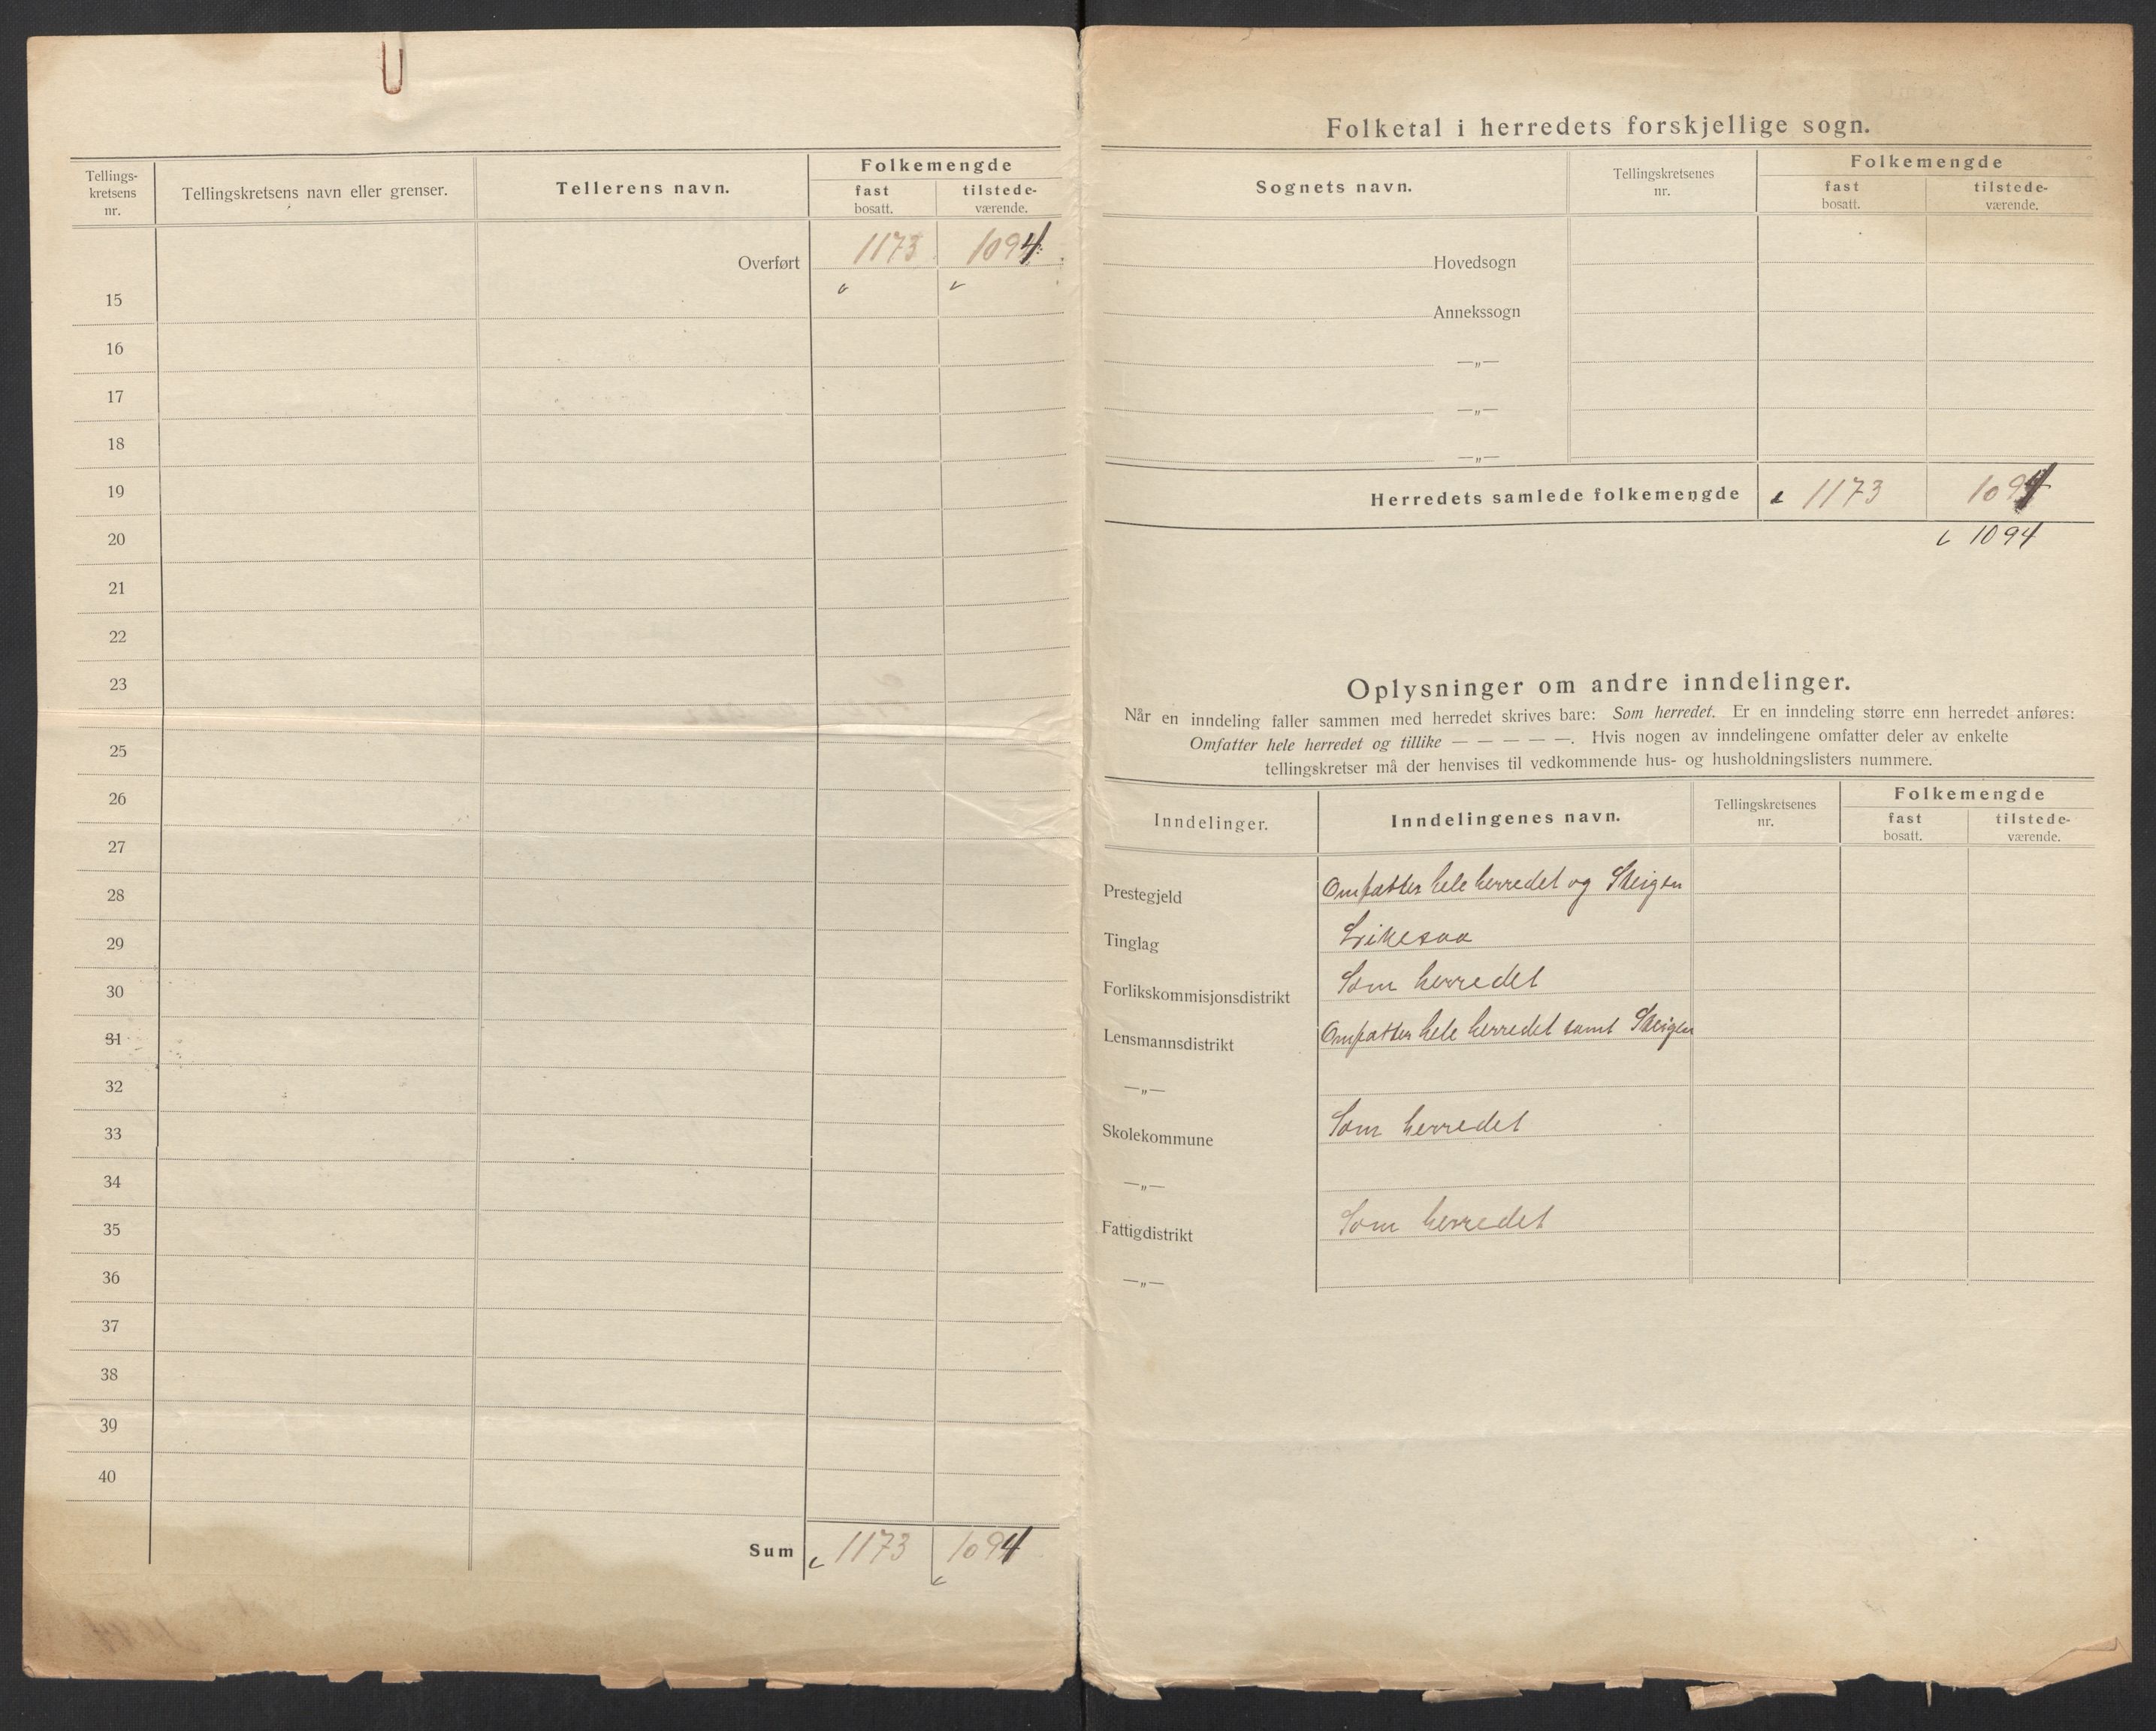 Tellings-
kretsens
nr.
Tellingskretsens navn eller grenser.
Tellerens navn.
Folkemengde
fast
bosatt.
tilstede-
værende.
Overført 1173 1094
15
16
17
18
19
20
21
22
23
25
26
27
28
29
30
31
32
33
34
35
36
37
38
39
40
Sum 1173 1094
Folketal i herredets forskjellige sogn.
Sognets navn.
Tellingskretsenes
nr.
Folkemengde
fast
bosatt.
tilstede-
værende.
Hovedsogn
Annekssogn
—„—
—„—
—„—
Herredets samlede folkemengde 1173 1094
1094
Oplysninger om andre inndelinger.
Når en inndeling faller sammen med herredet skrives bare: Som herredet. Er en inndeling større enn herredet anføres:
Omfatter hele herredet og tillike — — — — —. Hvis nogen av inndelingene omfatter deler av enkelte
tellingskretser må der henvises til vedkommende hus- og husholdningslisters nummere.
Inndelinger.
Inndelingenes navn.
Tellingskretsenes
nr.
Folkemengde
fast
bosatt.
tilstede-
værende.
Prestegjeld Omfatter hele herredet og Steigen
Tinglag
Forlikskommisjonsdistrikt Som herredet
Lensmannsdistrikt Omfatter hele herredet samt Steigen
—„—
Skolekommune Som herredet
—„—
Fattigdistrikt Som herredet
—„—